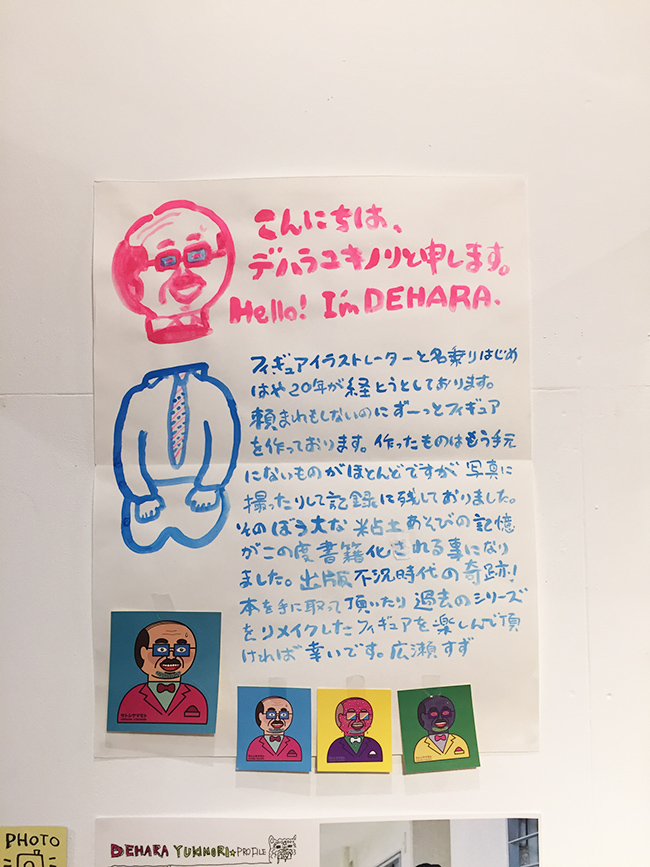 こんにちは、
デハラユキノリと申します。
Hello! I'm DEHARA.
フィギュアイラストレーターと名乗りはじめ
はや20年が経とうとしております。
頼まれもしないのにずーっとフィギュア
を作っております。作ったものはもう手元
にないものがほとんどですが写真に
撮ったりして記録に残しておりました。
そのぼう大な粘土あそびの記憶
がこの度書籍化される事になり
ました。出版不況時代の奇跡!
本を手に取って頂いたり過去のシリーズ
をリメイクしたフィギュアを楽しんで頂
ければ幸いです。広瀬すず
PHOTO
DEHARA YUKINORI☆PROFILE